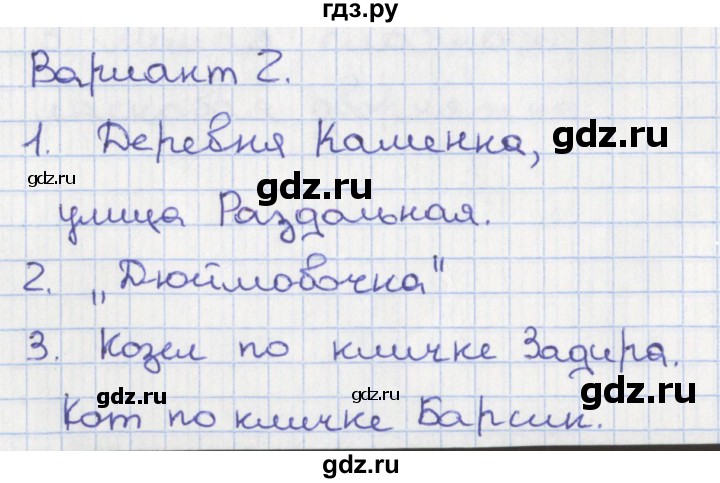 гдз.ру
Вариант 2.
1. Деревня Каменка,
gdz.ru
gdz.ru
gdz.ru
улица Раздольная.
2. „Дюймовочка"
gdz.ru
3. Козел по кличке Задира.
gdz.ru
gdz.ru
gdz.ru
Кот по кличке Барсик.
gdz.ru